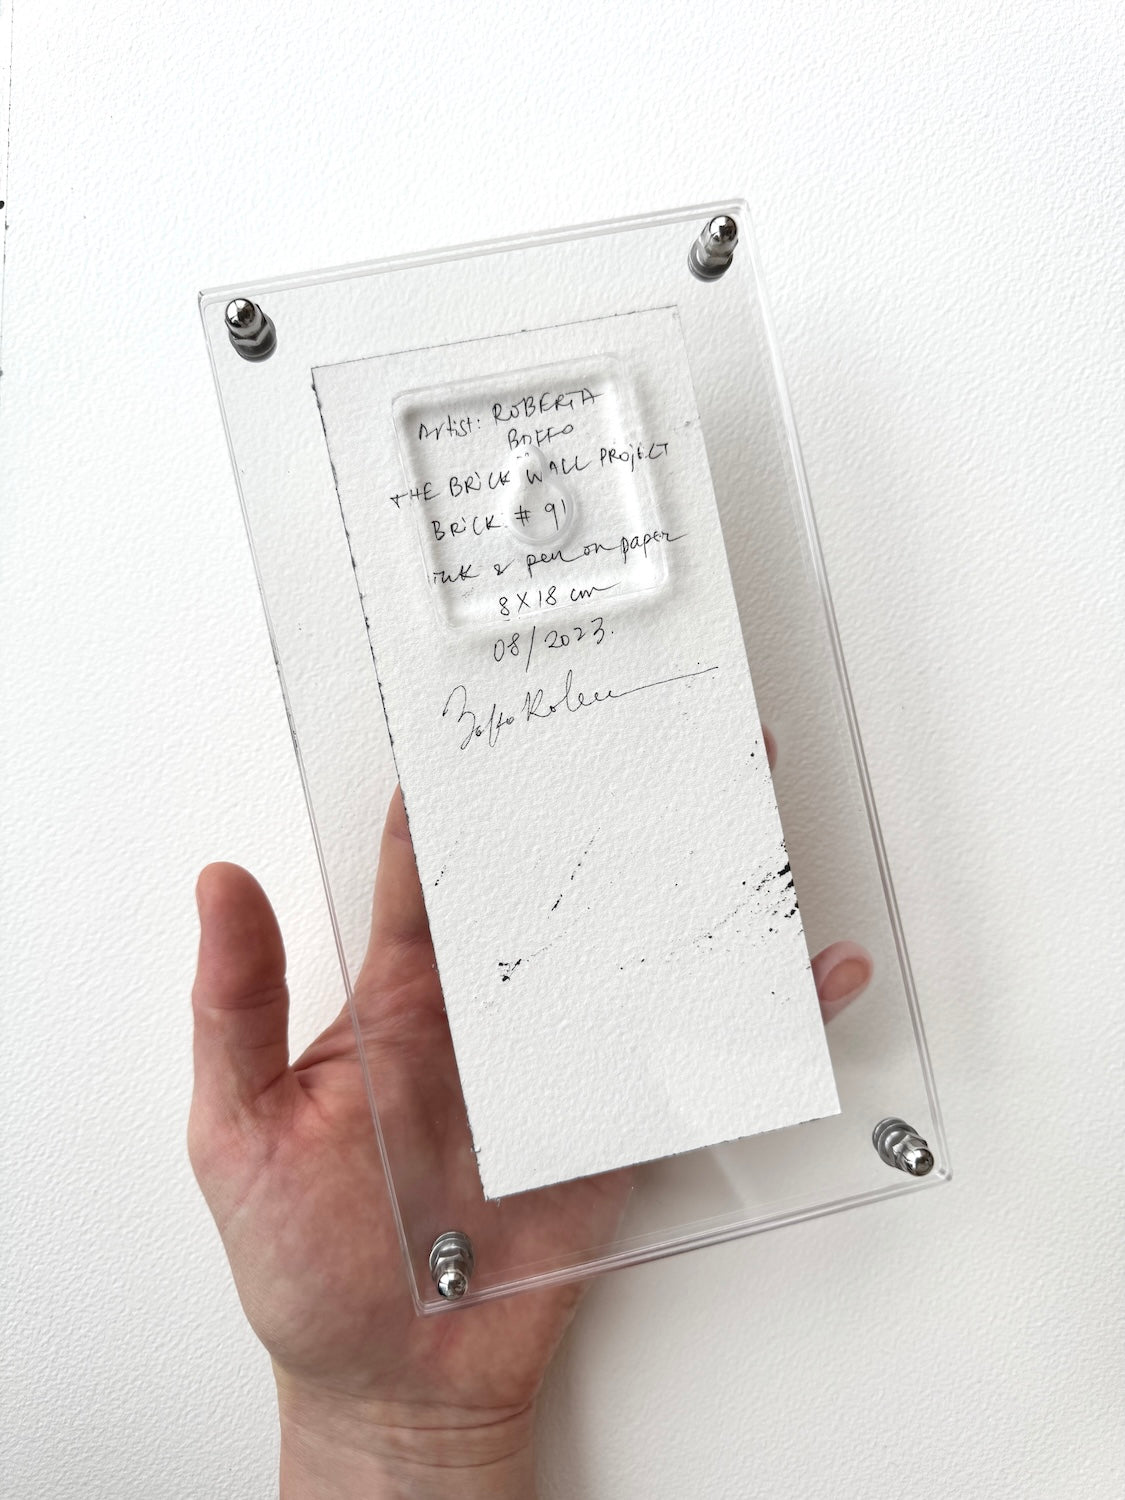 Artist: ROBERTA
BOFFO
THE BRiCK WALL PROjECT
BRiCK # 91
ink & pen on paper
8 X 18 cm
08/2023.
Boffo Roberta